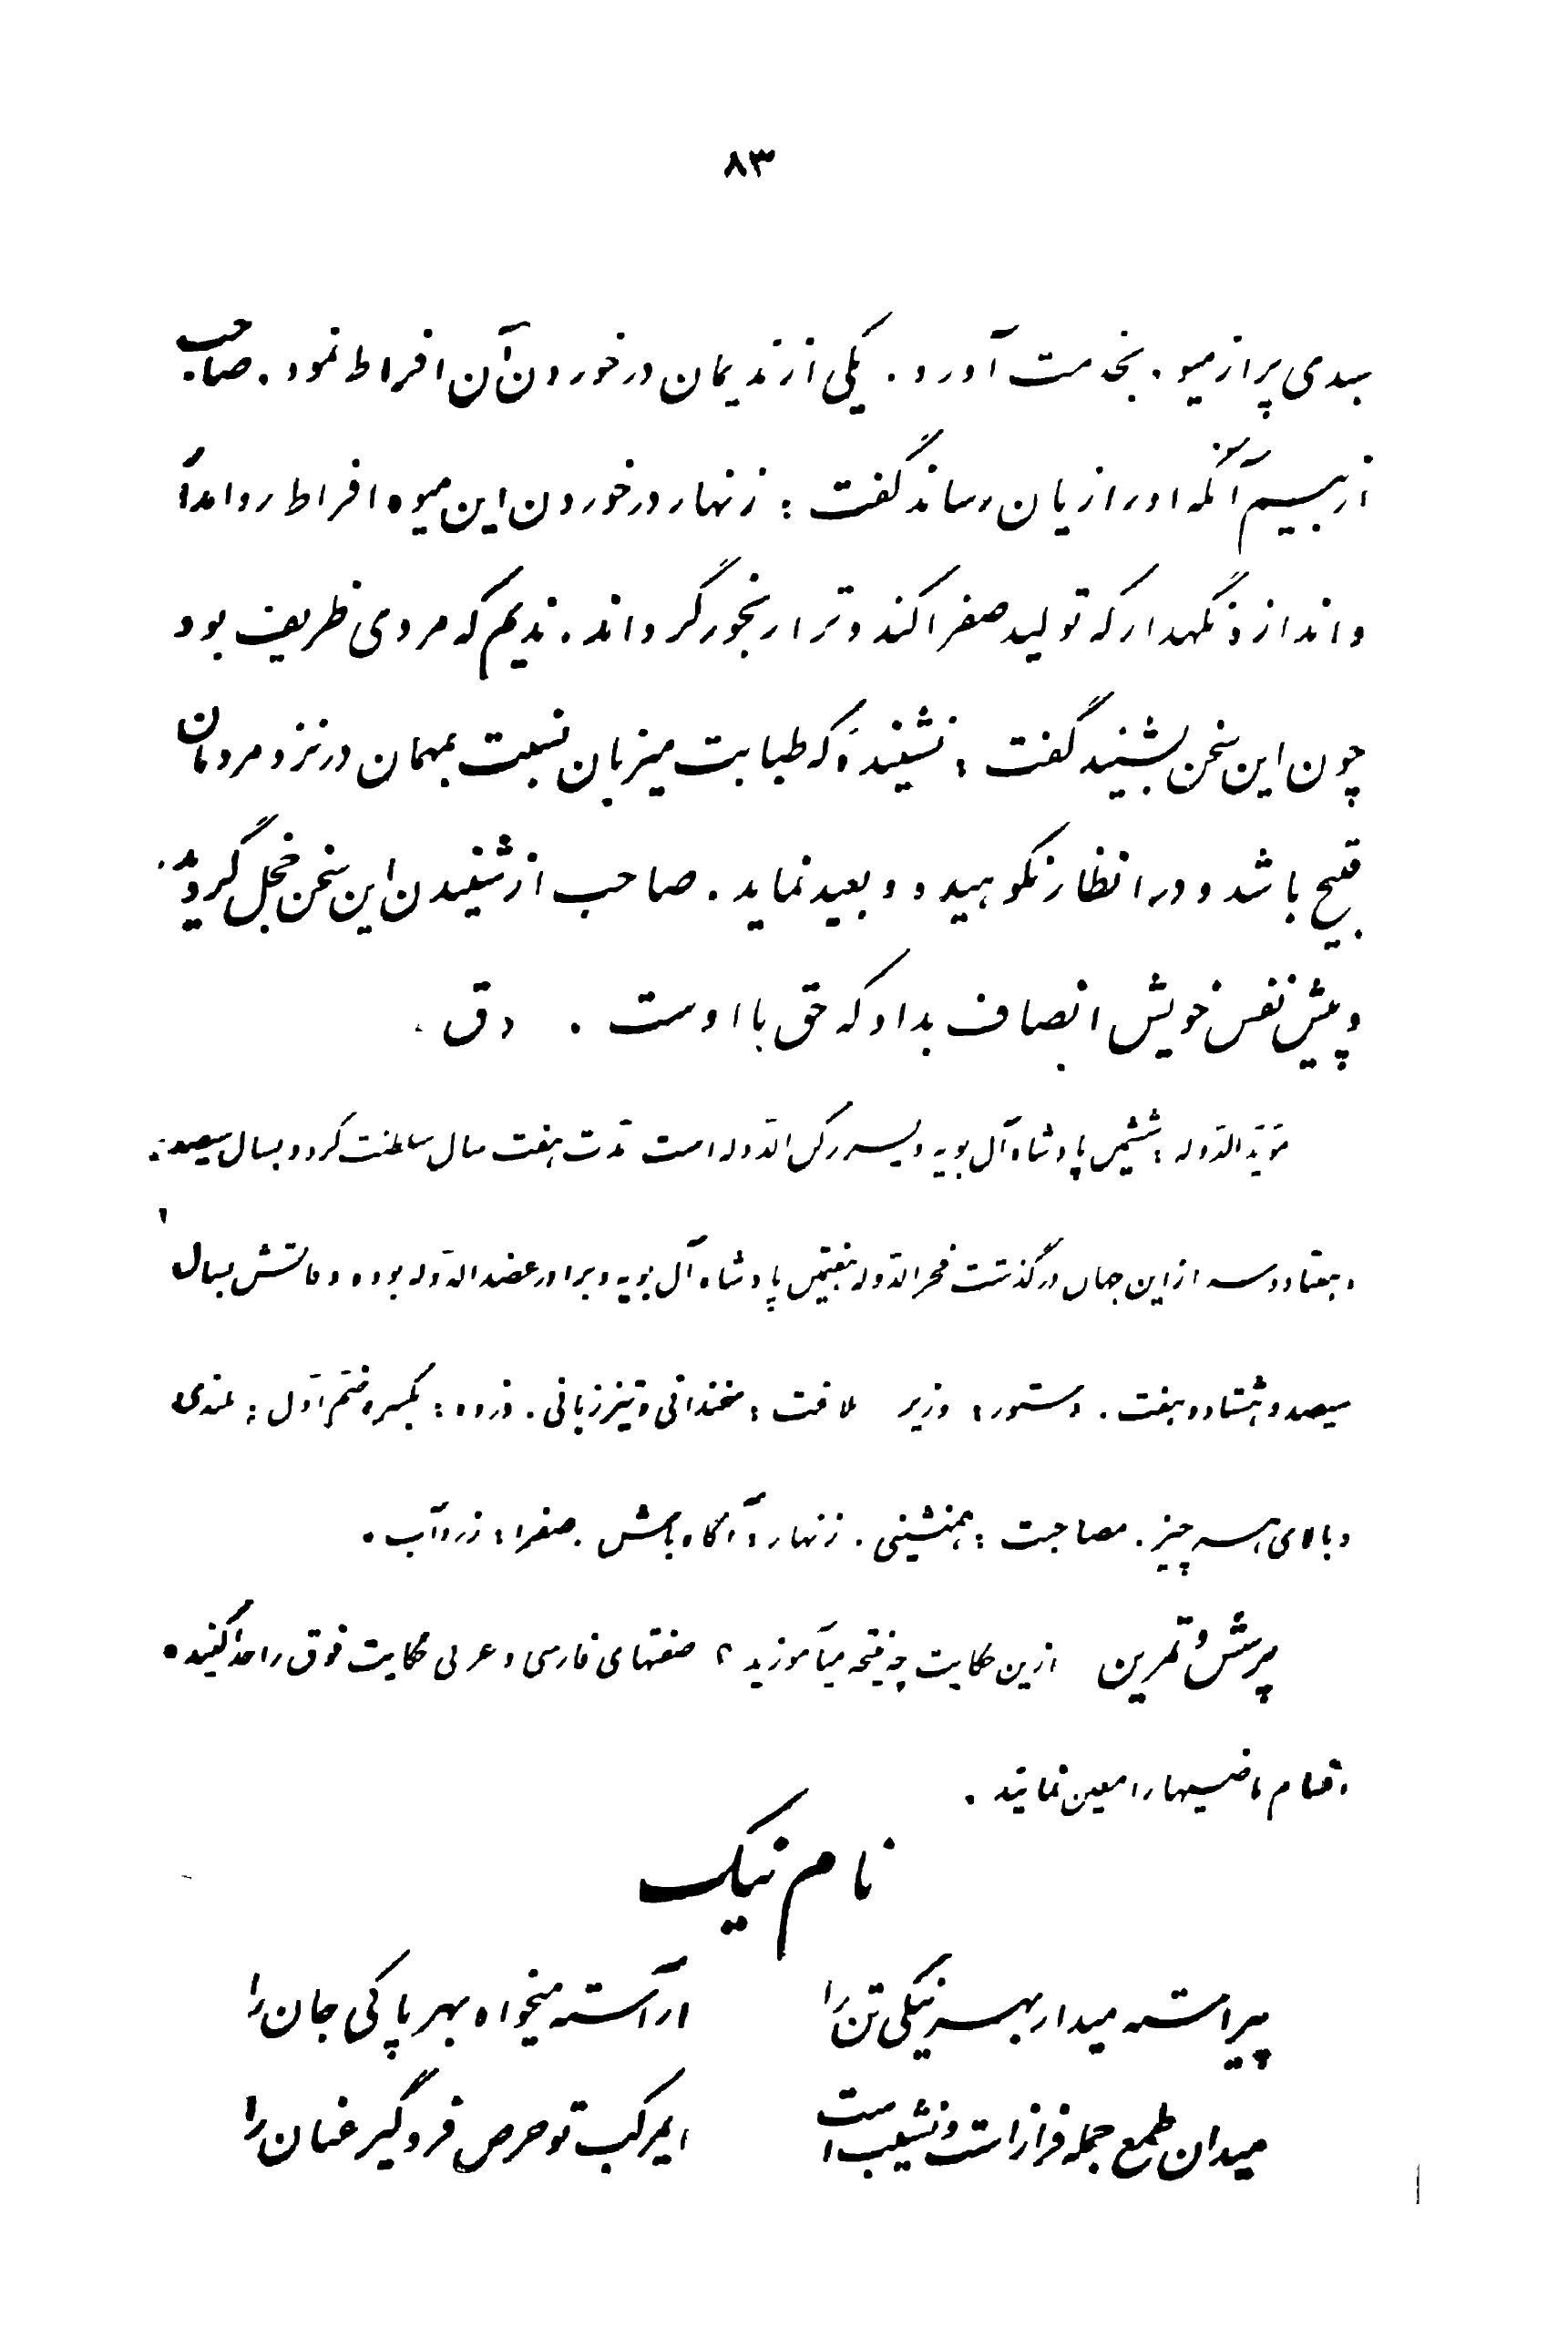 ۸۳
سبدی پر از میوه بخدمت آورد . یکی از ندیمان در خوردن آن افراط نمود . صاحب
از بیم آنکه او را زیان رساند گفت : زنهار در خوردن این میوه افراط روا مدار
و اندازه نگهدار که تولید صفرا کند و ترا رنجور گرداند . ندیم که مردی ظریف بود
چون این سخن بشنید گفت : نشنیدۀ که طبابت میزبان نسبت بمهمان در نزد مردمان
قبیح باشد و در انظار نکوهیده و بعید نماید . صاحب از شنیدن این سخن خجل گردید
و پیش نفس خویش انصاف بداد که حق با اوست . «ق»
مؤیدالدّوله : ششمین پادشاه آل بویه و پسر رکن الدّوله است مدّت هفت سال سلطنت کرد و بسال سیصد
و هفتاد و سه از این جهان درگذشت فخرالدّوله هفتمین پادشاه آل بویه و برادر عضدالدّوله بوده وفاتش بسال
سیصد و هشتاد و هفت . دستور : وزیر طلاقت : سخندانی و تیز زبانی . ذروه : بکسر و ضمّ اوّل : بلندی
و بالای هر چیز . مصاحبت : همنشینی . زنهار : آگاه باش . صفرا : زردآب .
پرسش و تمرین ازین حکایت چه نتیجه میآموزید ؟ صفتهای فارسی و عربی حکایت فوق را جدا کنید .
اقسام ماضیها را معین نمائید .
نام نیک
پیراسته میدار بهر نیکی تن را آراسته میخواه بهر پاکی جان را
میدان طمع جمله فراز است و نشیب است ای مرکب تو حرص فرو گیر عنان را